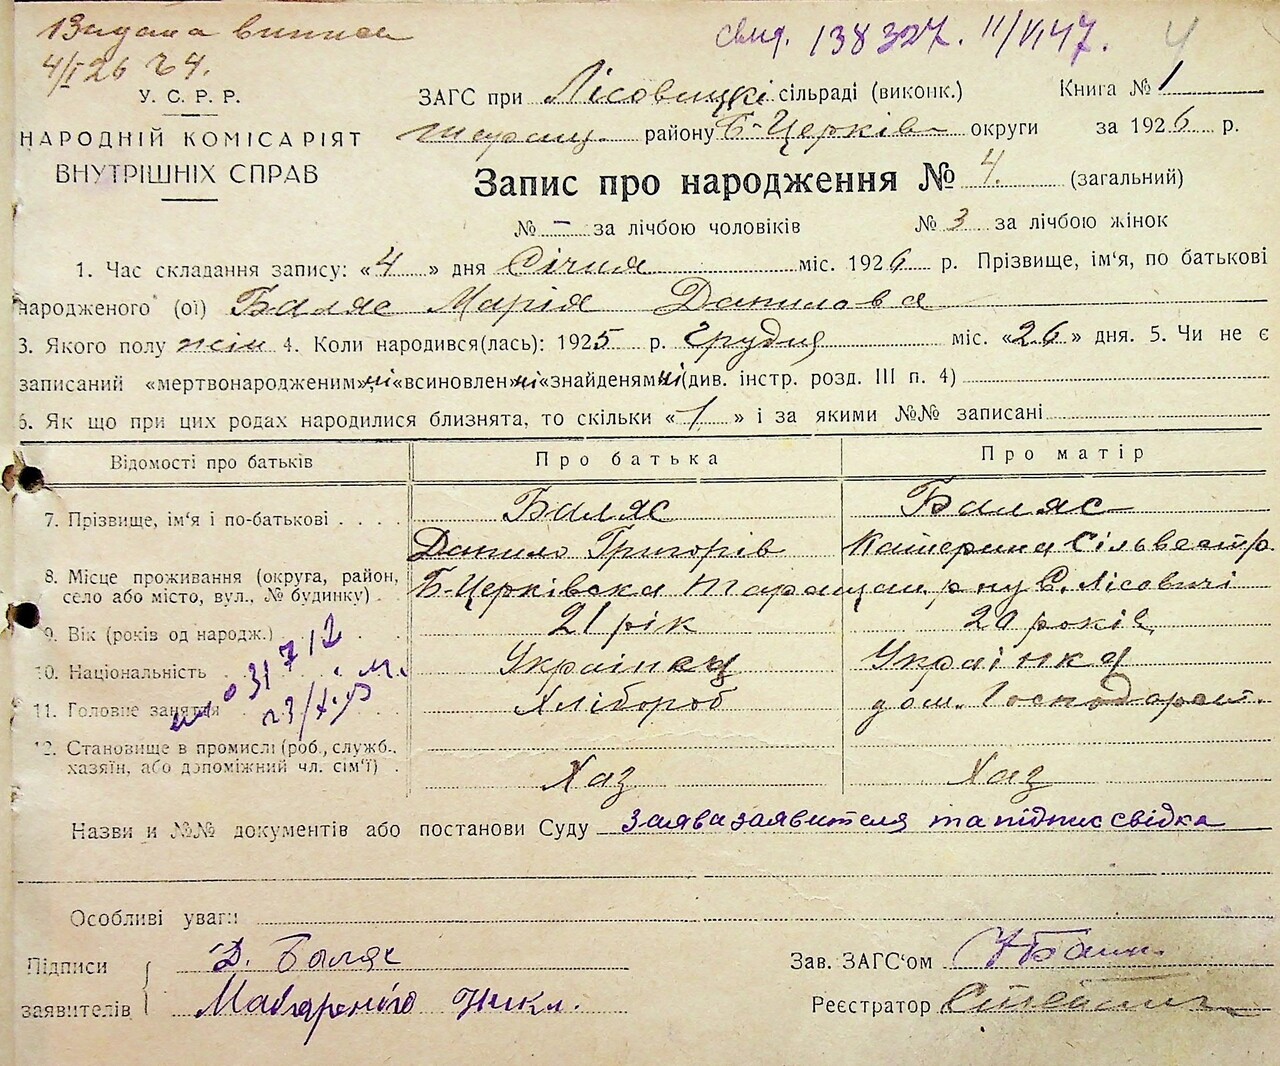 Видана виписка
4/I 26 №4.
свид. 138327. 11/VI 47. 4
У. С. Р. Р.
НАРОДНІЙ КОМІСАРІЯТ
ВНУТРІШНІХ СПРАВ
ЗАГС при Лісовицькі сільраді (виконк.) Книга № 1
Таращ. району Б-Церків округи за 1926 р.
Запис про народження № 4. (загальний)
№ — за лічбою чоловіків № 3 за лічбою жінок
1. Час складання запису: «4» дня Січня міс. 1926 р. Прізвище, ім'я, по батькові
народженого (ої) Баляс Марія Данилова
3. Якого полу жін 4. Коли народився(лась): 1925 р. Грудня міс. «26» дня. 5. Чи не є
записаний «мертвонародженим» ні «всиновлен» ні «знайденям» ні (див. інстр. розд. III п. 4)
6. Як що при цих родах народилися близнята, то скільки «1» і за якими №№ записані
Відомості про батьків Про батька Про матір
7. Прізвище, ім'я і по-батькові . . . . Баляс Баляс
Данило Григорів Катерина Сільвестр
8. Місце проживання (округа, район, село або місто, вул., № будинку) . Б-Церківска Таращан. р-ну С. Лісовичі
9. Вік (років од народж.) . . . . 21 рік 20 років
10. Національність . . Українец Українка
11. Головне заняття . . Хлібороб дом. Господарст.
31712
23/X
12. Становище в промислі (роб., служб.,
хазяїн, або допоміжний чл. сім'ї) . Хаз Хаз
Назви и №№ документів або постанови Суду заява заявителя та підпис свідка
Особливі уваги
Підписи Д. Баляс Зав. ЗАГС'ом
заявителів Реєстратор